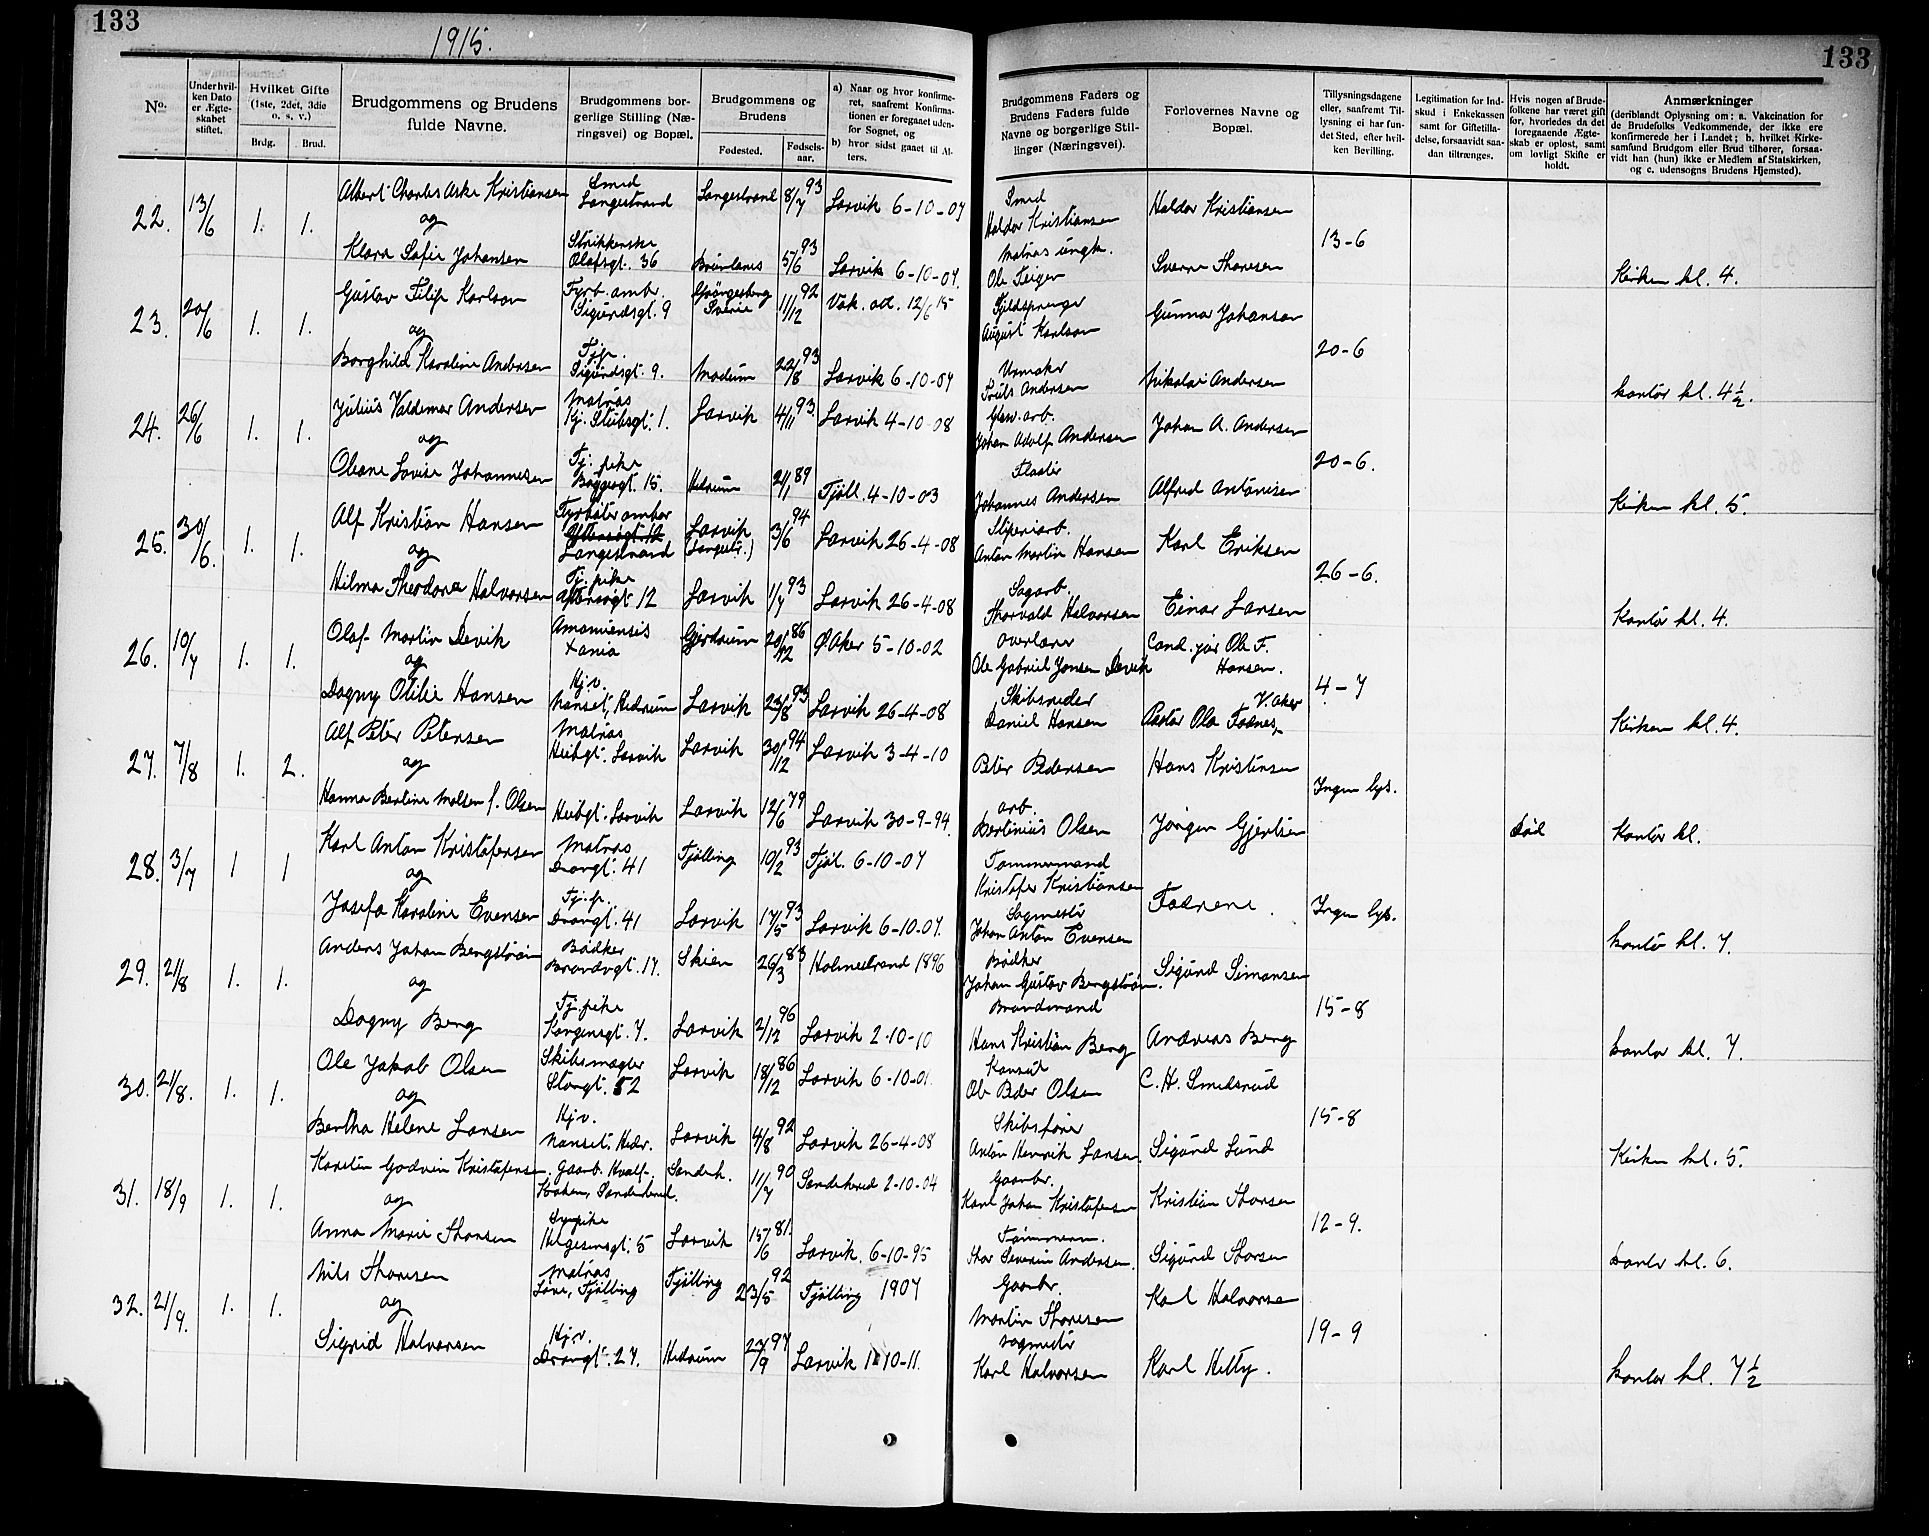 133
1915.
133
No.
Under hvil-
ken Dato
er Ægte-
skabet
stiftet.
Hvilket Gifte
(1ste, 2det, 3die
o. s. v.)
Brdg.
Brud.
Brudgommens og Brudens
fulde Navne.
Brudgommens bor-
gerlige Stilling (Næ-
ringsvei) og Bopæl.
Brudgommens og
Brudens
Fødested.
Fødsels-
aar.
a) Naar og hvor konfirme-
ret, saafremt Konfirma-
tionen er foregaaet uden-
for Sognet, og
b) hvor sidst gaaet til Al-
ters.
Brudgommens Faders og
Brudens Faders fulde
Navne og borgerlige Stil-
linger (Næringsvei).
Forlovernes Navne og
Bopæl.
Tillysningsdagene
eller, saafremt Til-
lysning ei har fun-
det Sted, efter hvil-
ken Bevilling.
Legitimation for Ind-
skud i Enkekassen
samt for Giftetilla-
delse, forsaavidt saa-
dan tiltrænges.
Hvis nogen af Brude-
folkene har været gift
før, hvorledes da det
foregaaende Ægte-
skab er opløst, samt
om lovligt Skifte er
holdt.
Anmærkninger
(deriblandt Oplysning om: a. Vakcination for
de Brudefolks Vedkommende, der ikke ere
konfirmerede her i Landet; b. hvilket Kirke-
samfund Brudgom eller Brud tilhører, forsaa-
vidt han (hun) ikke er Medlem af Statskirken,
og c. udensogns Brudens Hjemsted).
22. 13/6 1. 1. Albert Charles Aske Kristiansen Smed Langestrand Langestrand 8/7 93 Larvik 6-10-07 Smed Haldor Kristiansen Haldor Kristiansen 13-6
og
Klara Sofie Johansen Strikkerske Olafsgt. 36 Brunlanes 5/6 93 Larvik 6-10-07. Matros ungk. Ole Teigen Sverre Thoresen Kirken kl. 4.
23. 20/6 1. 1. Gustav Filip Karlson Fyrb. amb. Sigurdsgt. 9 Sverie 11/12 92 Vak. at. 12/6 15 Fjeldsprenger August Karlson Gunnar Johanson 20-6
og
Borghild Karoline Andersen Tjp. Sigurdsgt. 9. Modum 22/8 93 Larvik 6-10-07 Urmaker Truls Andersen Nikolai Andersen kontor kl. 4½.
24. 26/6 1. 1. Julius Valdemar Andersen Matros Kj. Stubsgt. 1. Larvik 4/11 93. Larvik 4-10-08 Glasv. arb. Johan Adolf Andersen Johan A. Andersen 20-6.
og
Oleane Lovise Johannesen Tj. pike Bøggegt. 15. Hedrum 21/1 89 Tjøll. 4-10-03 Johannes Andersen Alfred Antonisen Kirken kl. 5.
25. 30/6. 1. 1. Alf Kristian Hansen Fyrbøter ombor Langestrand Larvik (Langestr.) 3/6 94 Larvik 26-4-08 Støperiarb. Anton Martin Hansen Karl Eriksen 26-6.
og
Hilma Theodora Halvorsen Tj. pike 12 Larvik 1/7 93 Larvik 26-4-08 Sagarb. Thorvald Halvorsen Einar Larsen Kontor kl. 4.
26. 10/7 1. 1. Olaf Martin Devik Amanuensis Xania Gjerdrum 20/12 86 Ø. Aker 5-10-02 Overlærer Ole Gabriel Jonsen Devik Cand. jur Ole F. Hansen. 4-7
og
Dagny Otilie Hansen Hjv. Nanset, Hedrum Larvik 23/8 93 Larvik 26-4-08 Skibsreder Daniel Hansen V. Aker Pastor Ola Fodnes Kirken kl. 4.
27. 7/8 1. 2. Alf Peter Petersen Matros Heibgt. Larvik Larvik 30/12 94 Larvik 3-4-10 Peter Pedersen Hans Kristensen Ingen lys.
og
Hanna Bertine Molsen f. Olsen Heibgt. Larvik Larvik 12/6 79 Larvik 30-9-94. arb. Bertinius Olsen Jørgen Gjertsen Død Kontor kl.
28. 3/7 1 1 Karl Anton Kristofersen Matros Drongt. 41 Tjølling 10/2 93 Tjøl. 6-10-07 Tømmermand Kristofer Kristiansen Fædrene. Ingen lys.
og
Josefa Karoline Evensen Tj. p. Drongt. 41 Larvik 17/5 93 Larvik 6-10-07. Sagmester Johan Anton Evensen kontor kl. 7.
29. 21/8 1. 1. Anders Johan Bergstrøm Bødker Brandvgt. 17. Skien 26/3 83 Holmestrand 1896 Bødker Johan Gustav Bergstrøm. Sigurd Simonsen 15-8
og
Dagny Berg Tj. pike Kongensgt. 7. Larvik 2/12 96 Larvik 2-10-10 Brandmand Hans Kristian Berg Andreas Berg kontor kl. 7.
30. 21/8. 1. 1. Ole Jakob Olsen Skibsmægler Storgt. 52 Larvik 18/12 86 Larvik 6-10-01. Konsul Ole Peder Olsen C. H. Smedsrud 15-8
og
Bertha Helene Larsen Hjv. Nanset. Hedr. Larvik 4/8 92 Larvik 26-4-08 Skibsfører Anton Henrik Larsen Sigurd Lund Kirken kl. 5.
31. 18/9 1. 1. Karsten Godvin Kristofersen. Gaarb. Sandeherred. Sandeh. 11/7 90 Sandeherred 2-10-04 Gaarbr. Karl Johan Kristofersen Kristian Thorsen 12-9.
og
Anna Marie Thorsen Sypike Helgesensgt. 5 Larvik 15/6 81. Larvik. 6-10-95 Tømmerm. Thor Severin Andersen. Sigurd Thorsen kontor kl. 6.
32. 21/9. 1. 1. Nils Thoresen Matros Tjølling Tjølling 23/5 92 Tjølling 1907 Gaarbr. Martin Thoresen Karl Halvorsen 19-9
og
Sigrid Halvorsen Hjv. Drongt. 27. Hedrum 22/9 97 Larvik 1-10-11. sagmester Karl Halvorsen Karl Hetty. kontor kl. 7½